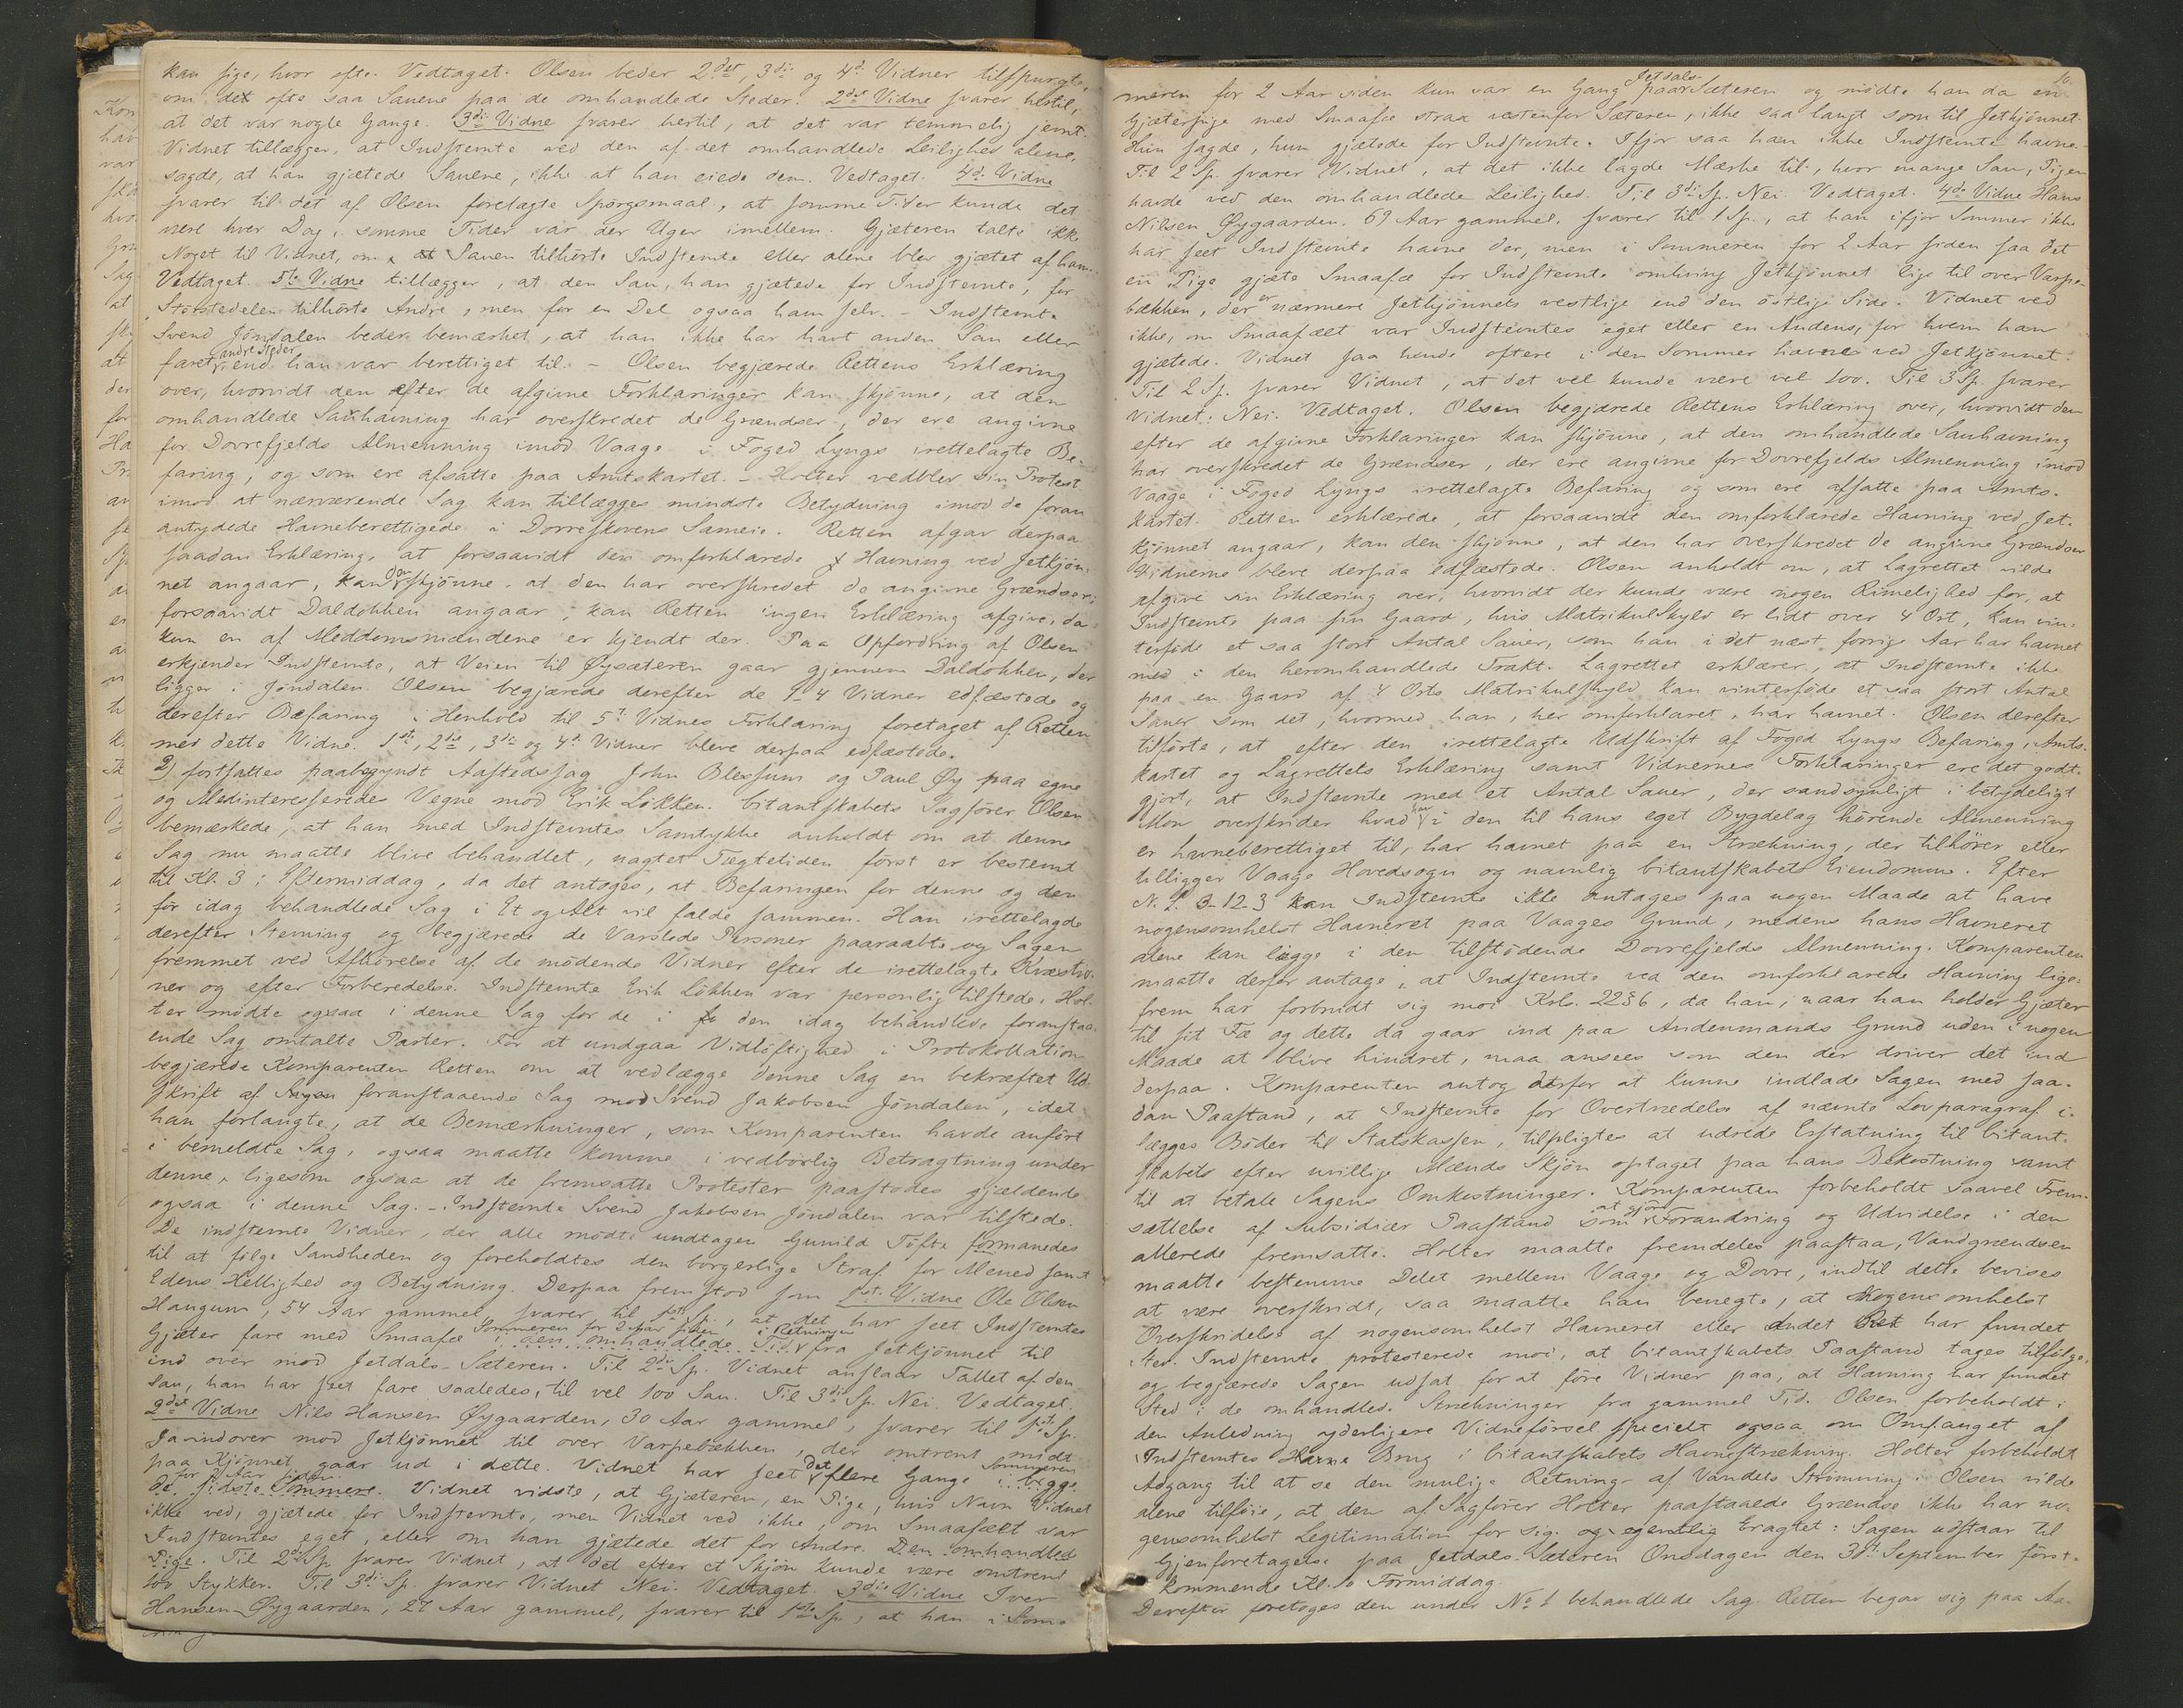 kan sige, hvor ofte. Vedtaget. Olsen beder 2det, 3di og 4d Vidner tilspurgte,
om det ofte saa Sauene paa de omhandlede Steder. 2det Vidne svarer hertil,
at det var nogle Gange. 3di Vidne svarer hertil, at det var temmelig jevnt.
Vidnet tillægger, at Indstevnte ved den af det omhandlede Leilighed alene
sagde, at han gjætede Sauene, ikke at han eiede dem. Vedtaget. 4d. Vidne
svarer til det af Olsen forelagte Spörgsmaal, at somme Tider kunde det
være hver Dag, somme Tider var der Uger imellem. Gjæteren talte ikke
Noget til Vidnet, om at Sauen tilhörte Indstevnte eller alene blev gjætet af ham.
Vedtaget. 5te Vidne tillægger, at den Sau, han gjætede for Indstevnte, for
Störstedelen tilhörte Andre, men for en Del ogsaa ham selv. - Indstevnte
Svend Jöndalen beder bemærket, at han ikke har havt anden Sau eller
faret andre Steder end han var berettiget til. - Olsen begjærede Rettens Erklæring
over, hvorvidt den efter de afgivne Forklaringer kan skjönne, at den
omhandlede Sauhavning har overskredet de Grændser, der ere angivne
for Dovrefjelds Almenning imod Vaage i Foged Lyngs irettelagte Be-
faring, og som ere afsatte paa Amtskartet. - Holter vedblev sin Protest
imod at nærværende Sag kan tillægges mindste Betydning imod de foran
antydede Havneberettigede i Dovreskovens Sameie. Retten afgav derpaa
saadan Erklæring, at forsaavidt den omforklarede Havning ved Jetkjön-
net angaar, kan den skjönne, at den har overskredet de angivne Grændser;
forsaavidt Daldokken angaar, kan Retten ingen Erklæring afgive, da
kun en af Meddomsmændene er kjendt der. Paa Opfordring af Olsen
erkjender Indstevnte, at Veien til Øysæteren gaar gjennem Daldokken, der
ligger i Jöndalen. Olsen begjærede derefter de 1-4 Vidner edfæstede og
derefter Befaring i Henhold til 5t Vidnes Forklaring foretaget af Retten
med dette Vidne. 1ste, 2det, 3di og 4d Vidner bleve derpaa edfæstede.
2) fortsattes paabegyndt Aastedssag John Blessum og Paul Øy paa egne
og Medinteresseredes Vegne mod Erik Løkken. Citantskabets Sagförer Olsen
bemærkede, at han med Indstevntes Samtykke anholdt om at denne
Sag nu maatte blive behandlet, uagtet Tægtetiden först er bestemt
til Kl. 3 i Eftermiddag, da det antoges, at Befaringen for denne og den
för idag behandlede Sag i Et og Alt vil falde sammen. Han irettelagde
derefter Stevning og begjærede de Varslede Personer paaraabte og Sagen
fremmet ved Afhörelse af de mödende Vidner efter de irettelagte Kvæstio-
ner og efter Forberedelse. Indstevnte Erik Lökken var personlig tilstede. Hol-
ter mödte ogsaa i denne Sag for de i den idag behandlede foranstaa-
ende Sag omtalte Parter. For at undgaa Vidlöftighed i Protokollation
begjærede Komparenten Retten om at vedlægge denne Sag en bekræftet Ud-
skrift af Sagen foranstaaende Sag mod Svend Jakobsen Jöndalen, idet
han forlangte, at de Bemærkninger, som Komparenten havde anfört
i bemeldte Sag, ogsaa maatte komme i vedbörlig Betragtning under
denne, ligesom ogsaa at de fremsatte Protester paastodes gjældende
ogsaa i denne Sag. - Indstevnte Svend Jakobsen Jöndalen var tilstede.
De indstevnte Vidner, der alle mödte undtagen Gunild Töfte formanedes
til at fölge Sandheden og foreholdtes den borgerlige Straf for Mened samt
Edens Hellighed og Betydning. Derpaa fremstod som 1st. Vidne Ole Olsen
Haugum, 54 Aar gammel, svarer til 1ste Sp., at det har seet Indstevntes
Gjæter fare med Smaafæ Sommeren for 2 Aar siden i den omhandlede Tid i Retningen fra Jetkjönnet til
ind over mod Jetdals-Sæteren. Til 2det Sp. Vidnet anslaar Tallet af den
Sau, han har seet fare saaledes, til vel 100 Sau. Til 3di Sp. Nei. Vedtaget.
2det Vidne Nils Hansen Øygaarden, 30 Aar gammel, svarer til 1st Sp.
Ja - indover mod Jetkjönnet til over Varpebækken, der omtrent midt
paa Kjönnet gaar ud i dette. Vidnet har seet det flere Gange Sommeren i begge
for 2 Aar siden de sidste Sommere. Vidnet vidste, at Gjæteren, en Pige, hvis Navn Vidnet
ikke ved, gjætede for Indstevnte, men Vidnet ved ikke, om Smaafæet var
Indstevntes eget, eller om han gjætede det for Andre. Den omhandlede
Pige. Til 2det Sp. svarer Vidnet, at det efter et Skjön kunde være omtrent
100 Stykker. Til 3di Sp. svarer Vidnet Nei. Vedtaget. 3die Vidne Iver
Hansen Øygaarden, 27 Aar gammel, svarer til 1ste Sp., at han i Som-
10.
meren for 2 Aar siden kun var en Gang paa Jetdals-Sæteren og mödte han da en
Gjæterpige med Smaafæ strax vestenfor Sæteren, ikke saa langt som til Jetkjönnet.
Hun sagde, hun gjætede for Indstevnte. Ifjor saa han ikke Indstevnte havne.
Til 2 Sp. svarer Vidnet, at det ikke lagde Mærke til, hvor mange Sau, Pigen
havde ved den omhandlede Leilighed. Til 3di Sp. Nei. Vedtaget. 4de Vidne Hans
Nilsen Øygaarden, 69 Aar gammel, svarer til 1 Sp., at han ifjor Sommer ikke
har seet Indstevnte havne der, men i Sommeren for 2 Aar siden saa det
en Pige gjæte Smaafæ for Indstevnte omkring Jetkjönnet lige til over Varpe-
bækken, der er nærmere Jetkjönnets vestlige end den östlige Side. Vidnet ved
ikke, om Smaafæet var Indstevntes eget eller en Andens, for hvem han
gjætede. Vidnet saa hende oftere i den Sommer havne ved Jetkjönnet.
Til 2 Sp. svarer Vidnet, at det vel kunde være vel 100. Til 3 Sp. svarer
Vidnet: Nei. Vedtaget. Olsen begjærede Rettens Erklæring over, hvorvidt den
efter de afgivne Forklaringer kan skjönne, at den omhandlede Sauhavning
har overskredet de Grændser, der ere angivne for Dovrefjelds Almenning imod
Vaage i Foged Lyngs irettelagte Befaring og som ere afsatte paa Amts-
kartet. Retten erklærede, at forsaavidt den omforklarede Havning ved Jet-
kjönnet angaar, kan den skjönne, at den har overskredet de angivne Grændser
Vidnerne bleve derpaa edfæstede. Olsen anholdt om, at Lagrettet vilde
afgive sin Erklæring over, hvorvidt der kunde være nogen Rimelighed for, at
Indstevnte paa sin Gaard, hvis Matrikulskyld er lidt over 4 Ort, kan vin-
terföde et saa stort Antal Sauer, som han i det næst forrige Aar har havnet
med i den heromhandlede Trakt. Lagrettet erklærer, at Indstevnte ikke
paa en Gaard af 4 Orts Matrikulskyld kan vinterföde et saa stort Antal
Sauer som det, hvormed han, her omforklaret, har havnet. Olsen derefter
tilförte, at efter den irettelagte Udskrift af Foged Lyngs Befaring, Amts-
kartet og Lagrettets Erklæring samt Vidnernes Forklaringer ere det godt-
gjort, at Indstevnte med et Antal Sauer, der sandsynligt i betydeligt
Mon overskrider hvad han i den til hans eget Bygdelag hörende Almenning
er havneberettiget til, har havnet paa en Strækning, der tilhörer eller
tilligger Vaage Hovedsogn og navnlig Citantskabets Eiendomme. Efter
N. L. 3-12-3 kan Indstevnte ikke antages paa nogen Maade at have
nogensomhelst Havneret paa Vaages Grund, medens hans Havneret
alene kan ligge i den tilstödende Dovrefjelds Almenning. Komparenten
maatte derfor antage, at Indstevnte ved den omforklarede Havning lige-
frem har forbrudt sig mod Krl. 22 § 6, da han, naar han holder Gjæter
til sit Fæ og dette da gaar ind paa Andenmands Grund uden i nogen
Maade at blive hindret, maa ansees som den der driver det ind
derpaa. Komparenten antog derfor at kunne indlade Sagen med saa-
dan Paastand, at Indstevnte for Overtrædelse af nævnte Lovparagraf i-
lægges Böder til Statskassen, tilpligtes at udrede Erstatning til Citant-
skabets efter uvillige Mænds Skjön optaget paa hans Bekostning samt
til at betale Sagens Omkostninger. Komparenten forbeholdt saavel Frem-
sættelse af subsidiær Paastand som at gjöre Forandring og Udvidelse i den
allerede fremsatte. Holter maatte fremdeles paastaa, Vandgrændsen
maatte bestemme Delet mellem Vaage og Dovre, indtil dette bevises
at være overskridt, saa maatte han benegte, at nogensomhelst
Overskridelse af nogensomhelst Havneret eller andet Ret har fundet
sted. Indstevnte protesterede mod, at Citantskabets Paastand tages tilfölge,
og begjærede Sagen udsat for at före Vidner paa, at Havning har fundet
Sted i de omhandlede Strækninger fra gammel Tid. Olsen forbeholdt i
den Anledning yderligere Vidneförsel specielt ogsaa om Omfanget af
Indstevntes Havne Brug i Citantskabets Havnestrækning. Holter forbeholdt
Adgang til at se den mulige Retning af Vandets Strömning. Olsen vilde
alene tilföie, at den af Sagförer Holter paastaaede Grændse ikke har no-
gensomhelst Legitimation for sig og egentlig Eragtet: Sagen udstaar til
Gjenforetagelse paa Jetdals-Sæteren Onsdagen den 30t September först-
kommende Kl. 10 Formiddag.
Derefter foretoges den under No 1 behandlede Sag. Retten begav sig paa Aa-